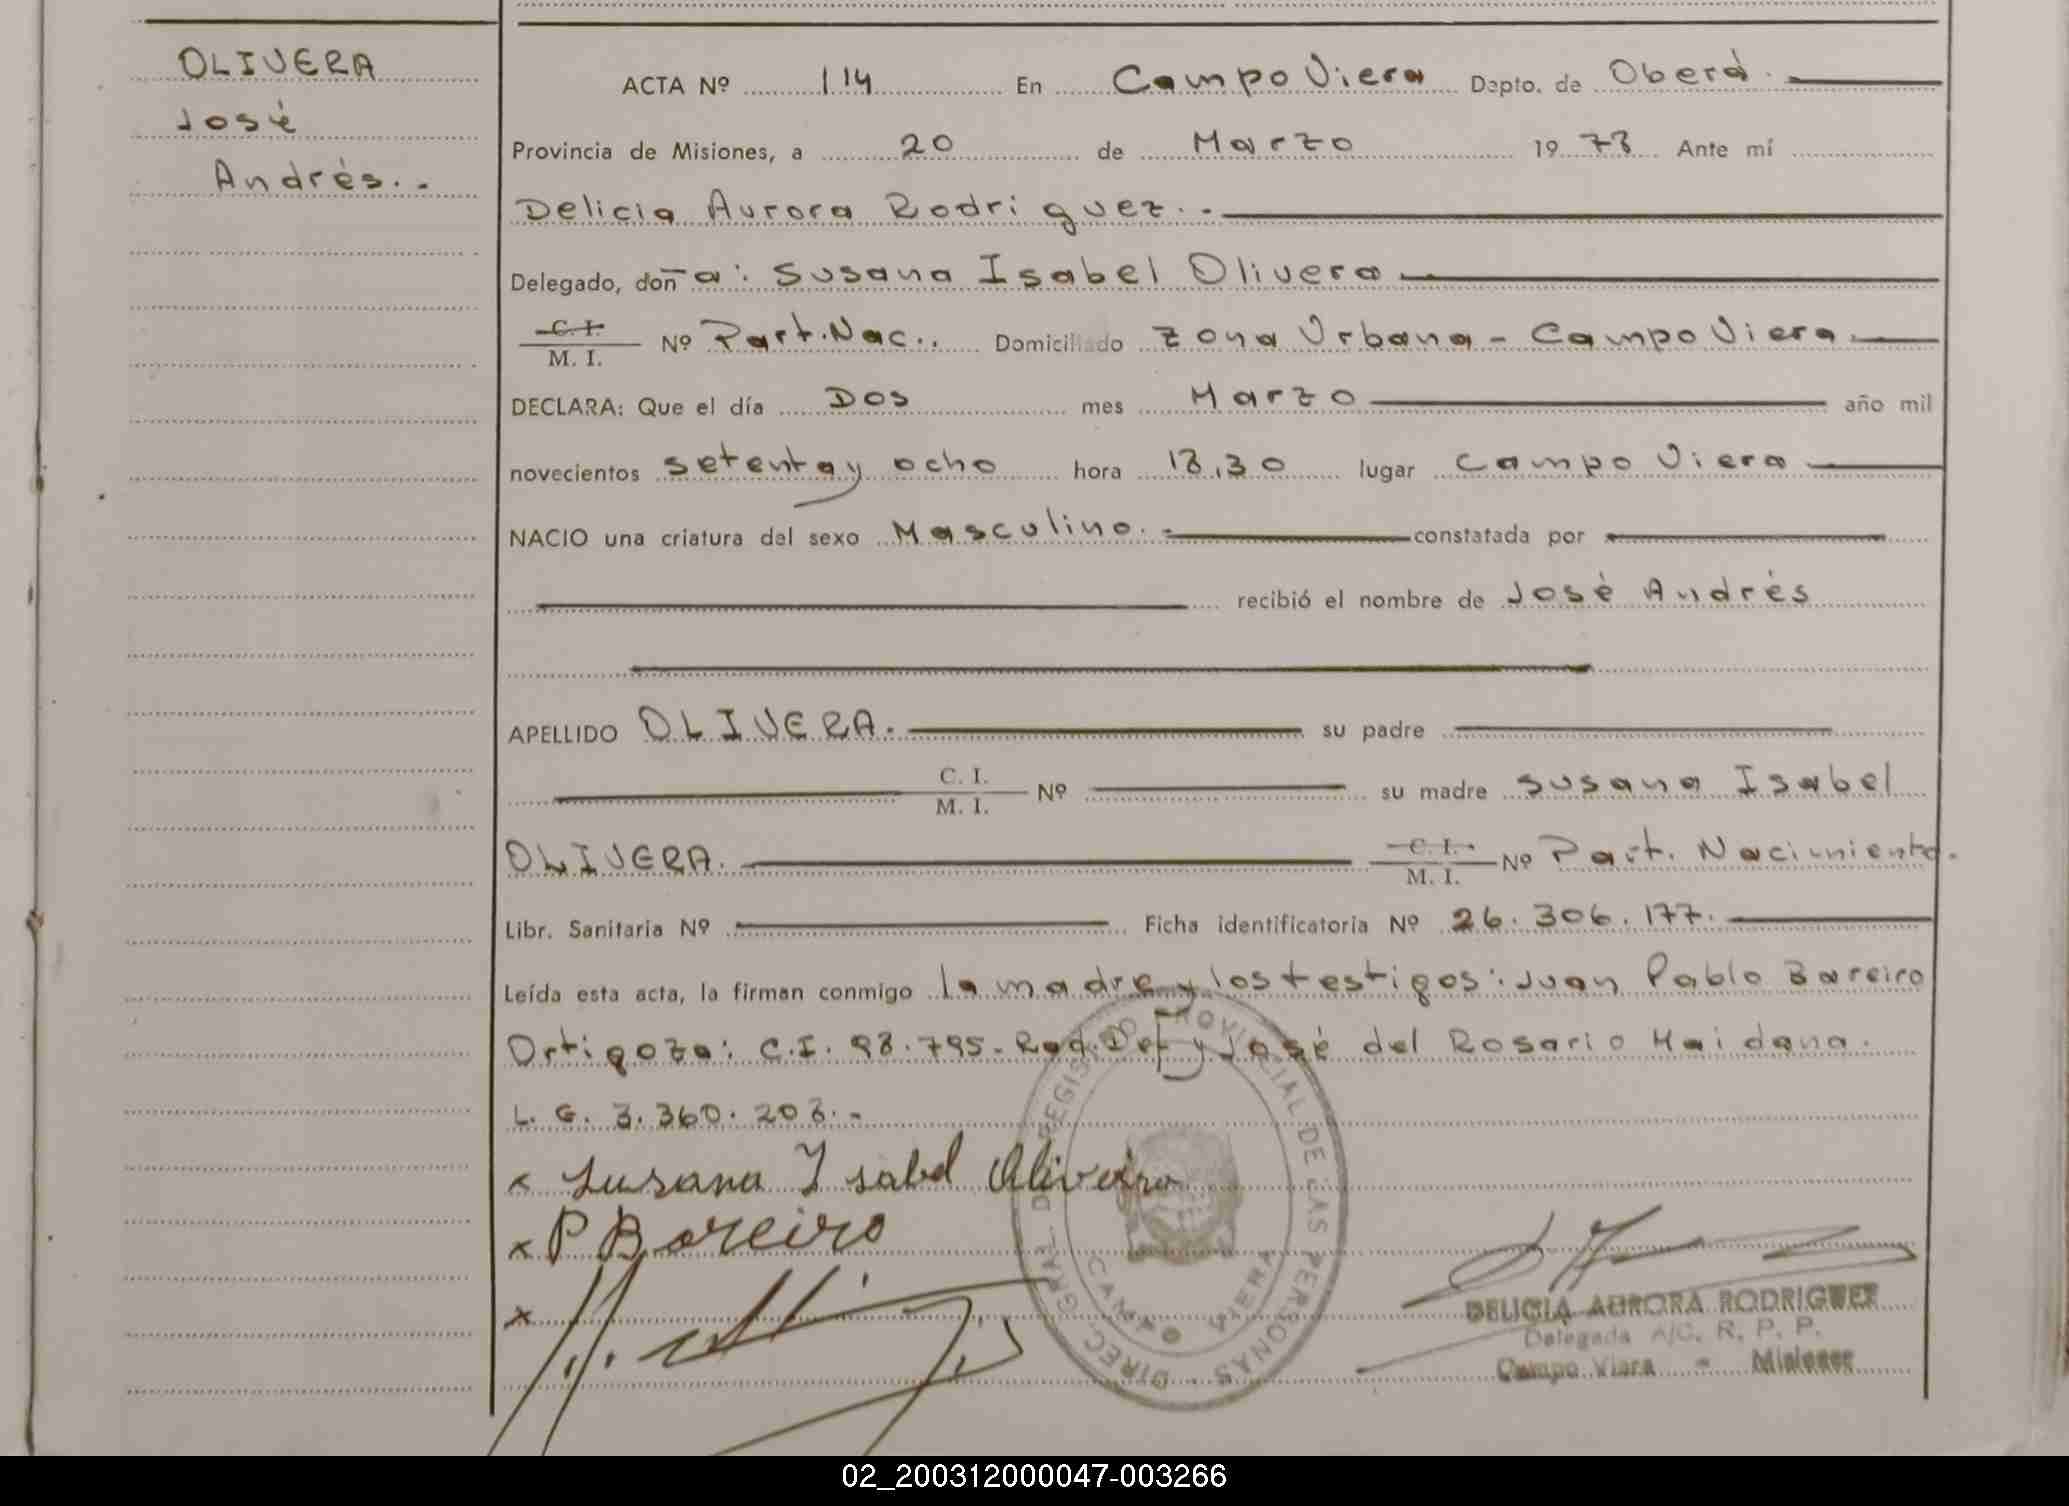 OLIVERA
José
Andrés.-
ACTA Nº 114 En Campo Viera Dapto. de Oberá.
Provincia de Misiones, a 20 de Marzo 1978 Ante mí
Delicia Aurora Rodriguez.-
Delegado, doña: Susana Isabel Olivera
C. I.
M. I. Nº Part. Nac.. Domiciliado Zona Urbana - Campo Viera
DECLARA: Que el día Dos mes Marzo año mil
novecientos setenta y ocho hora 18,30 lugar Campo Viera
NACIO una criatura del sexo Masculino.- constatada por
recibió el nombre de José Andrés
APELLIDO OLIVERA. su padre
C. I.
M. I. Nº su madre Susana Isabel
OLIVERA. C. I.
M. I. Nº Part. Nacimiento.
Libr. Sanitaria Nº Ficha identificatoria Nº 26.306.177.
Leída esta acta, la firman conmigo la madre y los testigos: Juan Pablo Bareiro
Ortigoza: C.I. 98.795- Rad. Def y José del Rosario Maidana.
L. E. 3.360.208.-
x Susana Isabel Oliveira
x P Boreiro
x
DIREC. GRAL. DE REGISTRO PROVINCIAL DE LAS PERSONAS
CAMPO VIERA
DELICIA AURORA RODRIGUEZ
Delegada A/C. R. P. P.
Campo Viera - Misiones
02_200312000047-003266